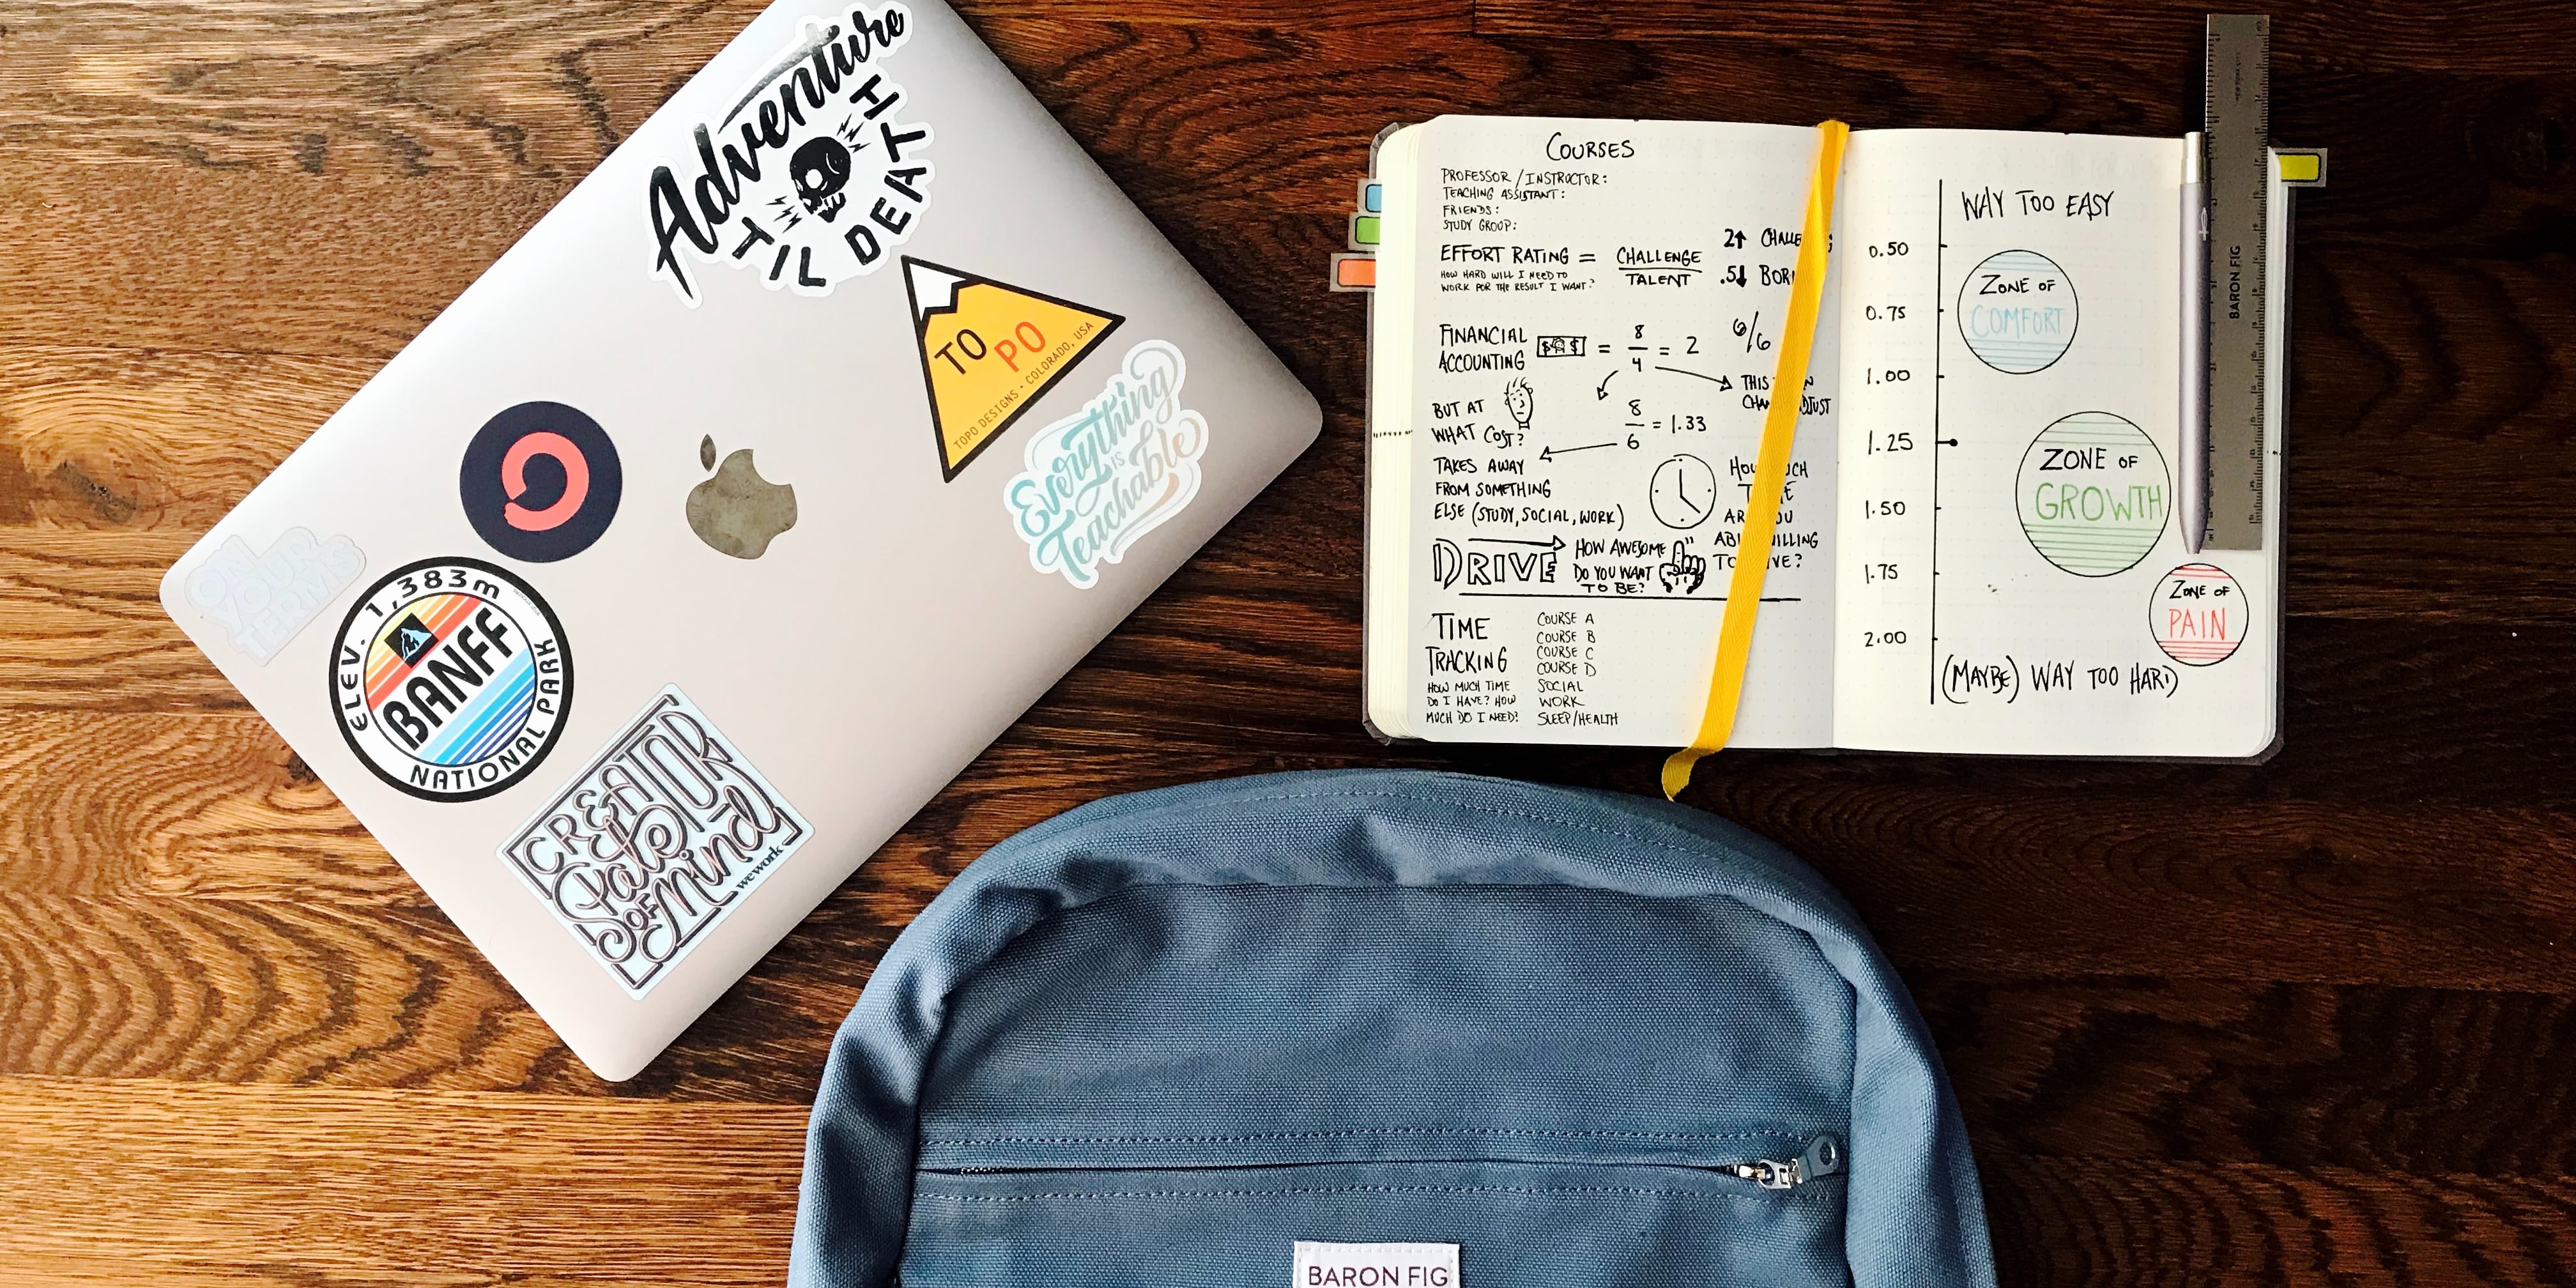 Adventure
TIL DEATH
TOPO
TOPO DESIGNS • COLORADO, USA
Everything
IS
Teachable
ON
YOUR
TERMS
ELEV. 1,383m
BANFF
NATIONAL PARK
CREATOR
State
OF Mind
wework
COURSES
PROFESSOR/INSTRUCTOR:
TEACHING ASSISTANT:
FRIENDS:
STUDY GROUP:
EFFORT RATING = CHALLENGE
TALENT
HOW HARD WILL I NEED TO
WORK FOR THE RESULT I WANT?
2↑
.5↓
FINANCIAL
ACCOUNTING
$ $ = 8/4 = 2
6/6
THIS
BUT AT
WHAT COST?
8/6 = 1.33
TAKES AWAY
FROM SOMETHING
ELSE (STUDY, SOCIAL, WORK)
DRIVE
HOW AWESOME
DO YOU WANT
TO BE?
TIME
TRACKING
HOW MUCH TIME
DO I HAVE? HOW
MUCH DO I NEED?
COURSE A
COURSE B
COURSE C
COURSE D
SOCIAL
WORK
SLEEP/HEALTH
WAY TOO EASY
0.50
ZONE OF
COMFORT
0.75
1.00
1.25
ZONE OF
GROWTH
1.50
1.75
ZONE OF
PAIN
2.00
(MAYBE) WAY TOO HARD
BARON FIG
BARON FIG